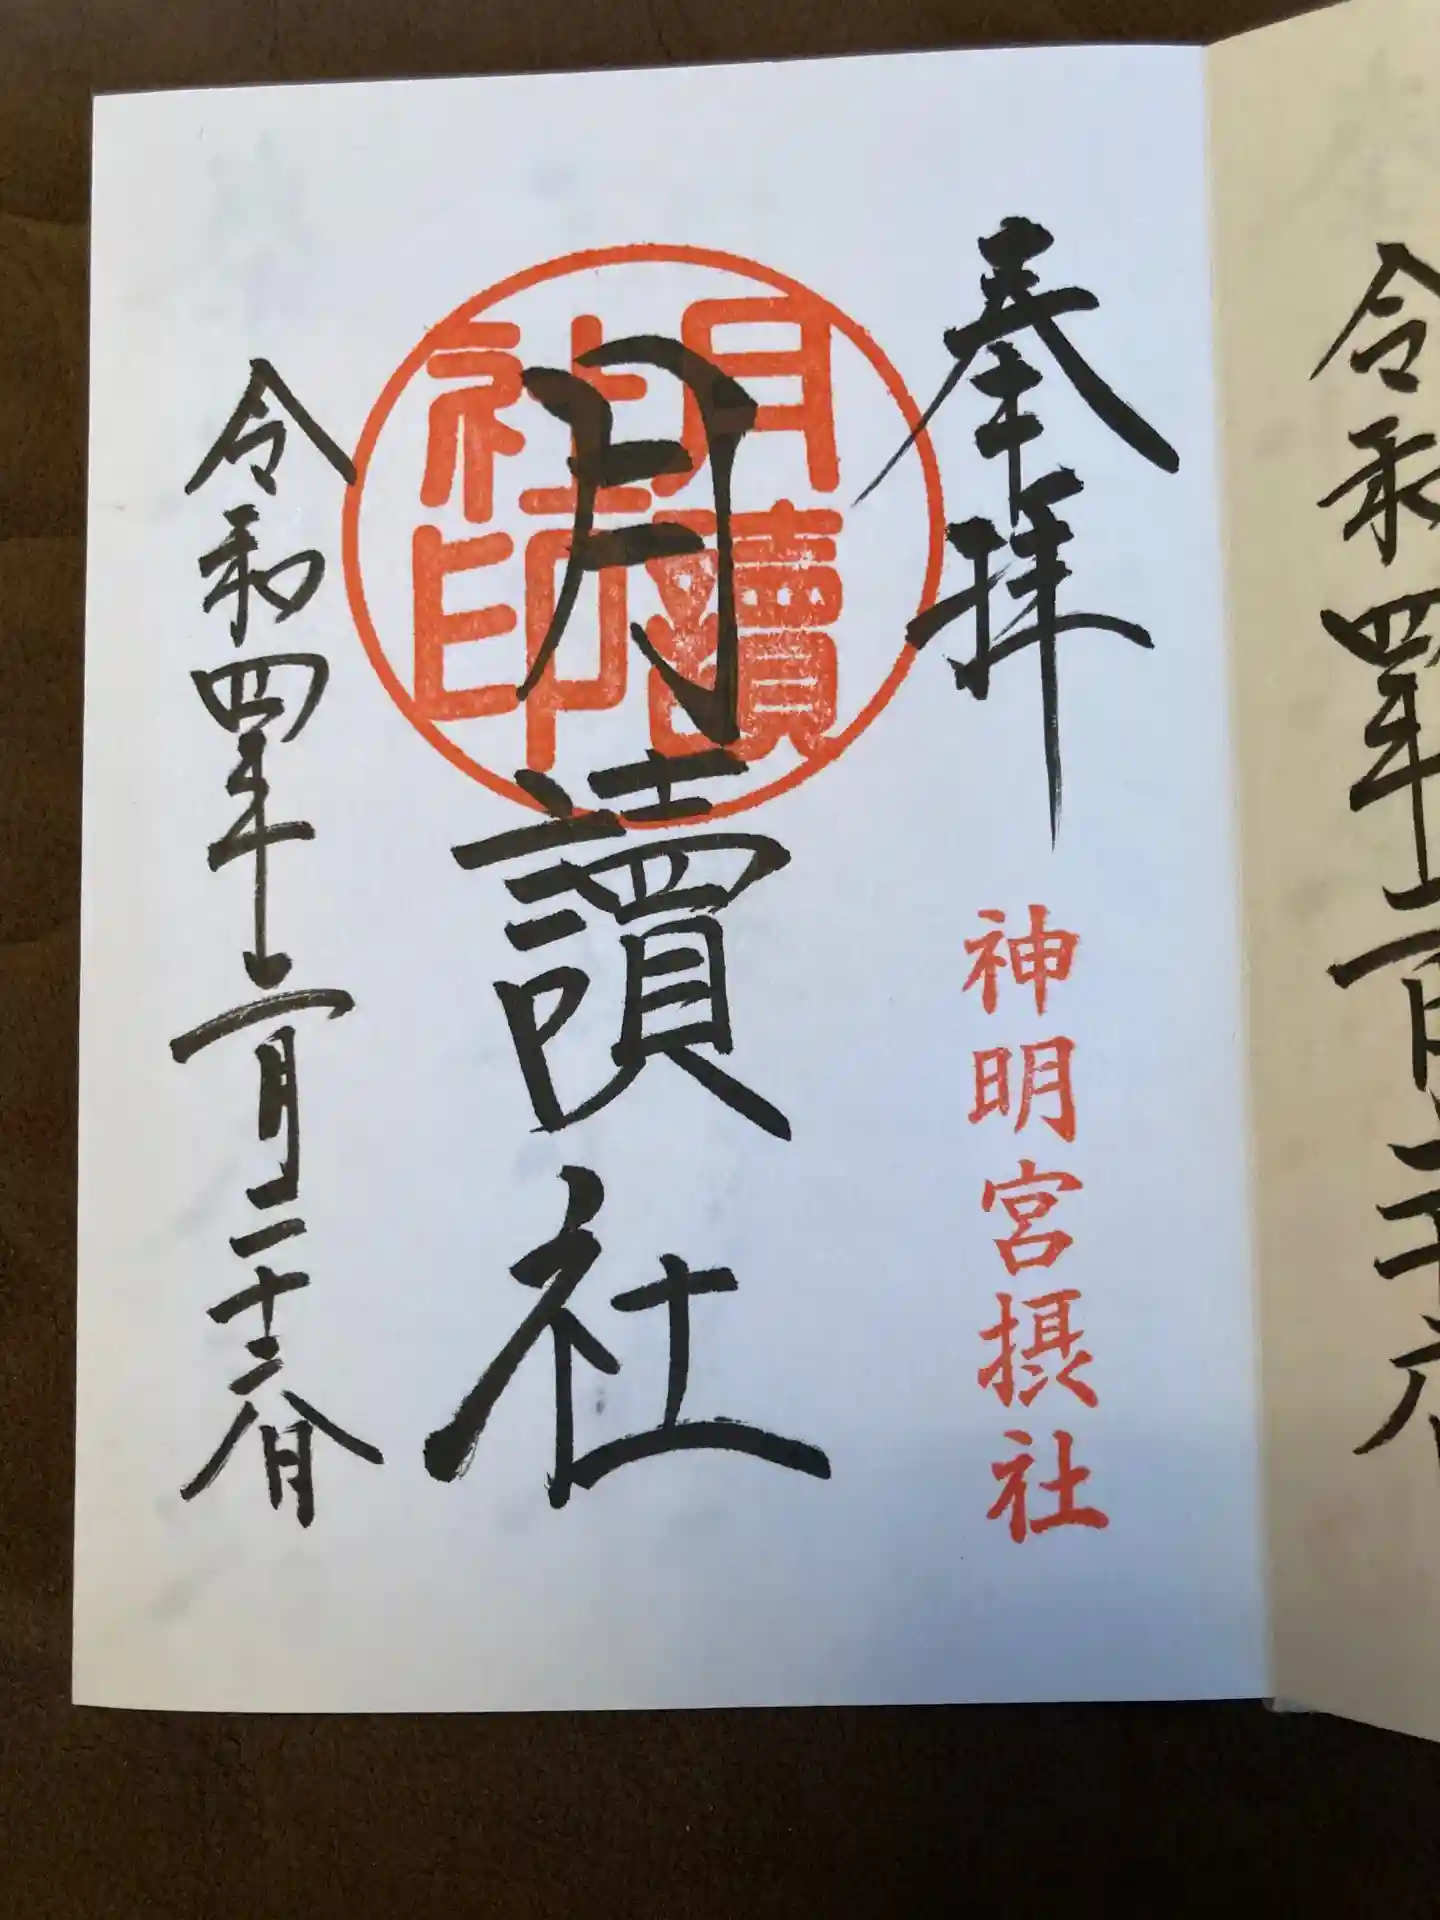 令和四年二月二十六日
奉拝
神明宮摂社
月讀
社印
月讀社
令和四年二月二十六日